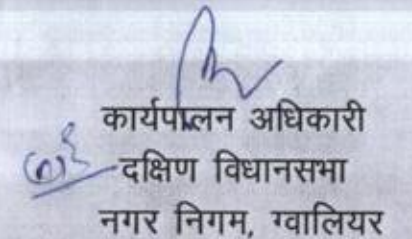 कार्यपालन अधिकारी
दक्षिण विधानसभा
नगर निगम, ग्वालियर